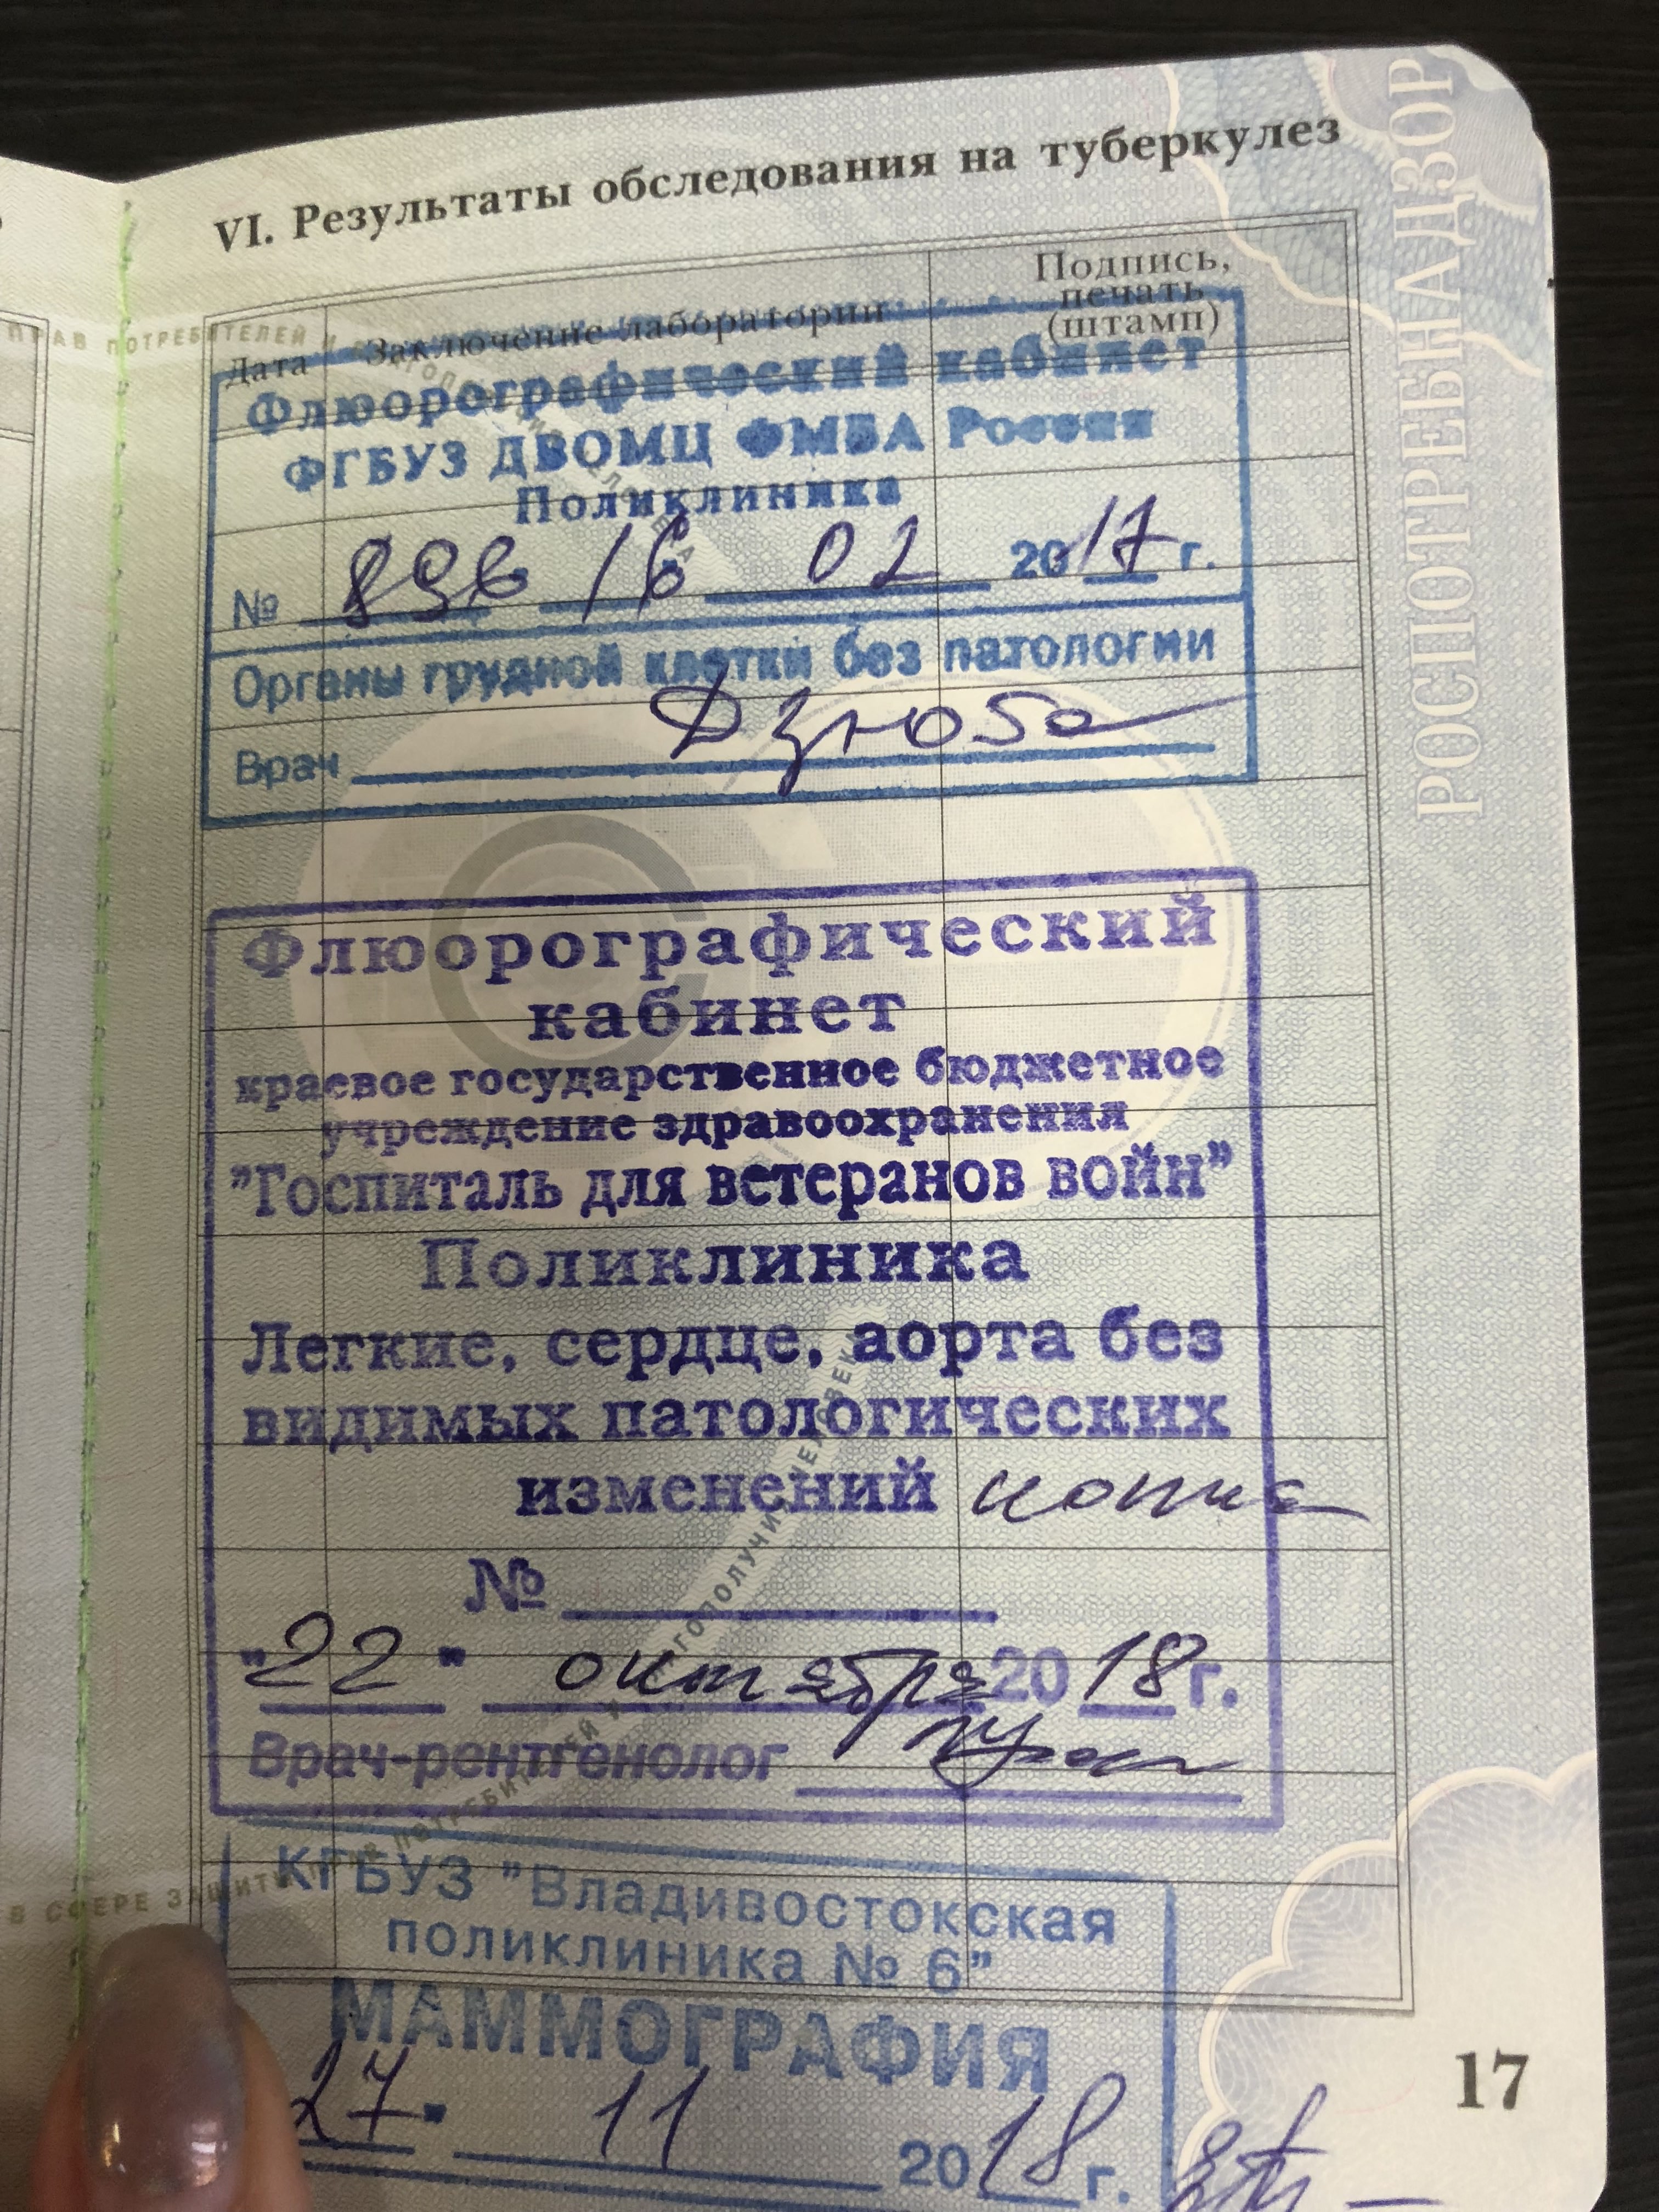 VI. Результаты обследования на туберкулез
Дата
Заключение лаборатории
Подпись,
печать
(штамп)
Флюорографический кабинет
ФГБУЗ ДВОМЦ ФМБА России
Поликлиника
№ 896 16 02 2017 г.
Органы грудной клетки без патологии
Врач Дзюба
Флюорографический
кабинет
краевое государственное бюджетное
учреждение здравоохранения
"Госпиталь для ветеранов войн"
Поликлиника
Легкие, сердце, аорта без
видимых патологических
изменений копия
№
"22" октября 2018 г.
Врач-рентгенолог
КГБУЗ "Владивостокская
поликлиника № 6"
МАММОГРАФИЯ
27 11 2018 г.
17
РОСПОТРЕБНАДЗОР
ПРАВ ПОТРЕБИТЕЛЕЙ И
В СФЕРЕ ЗАЩИТЫ ПРАВ ПОТРЕБИТЕЛЕЙ И БЛАГОПОЛУЧИЯ ЧЕЛОВЕКА